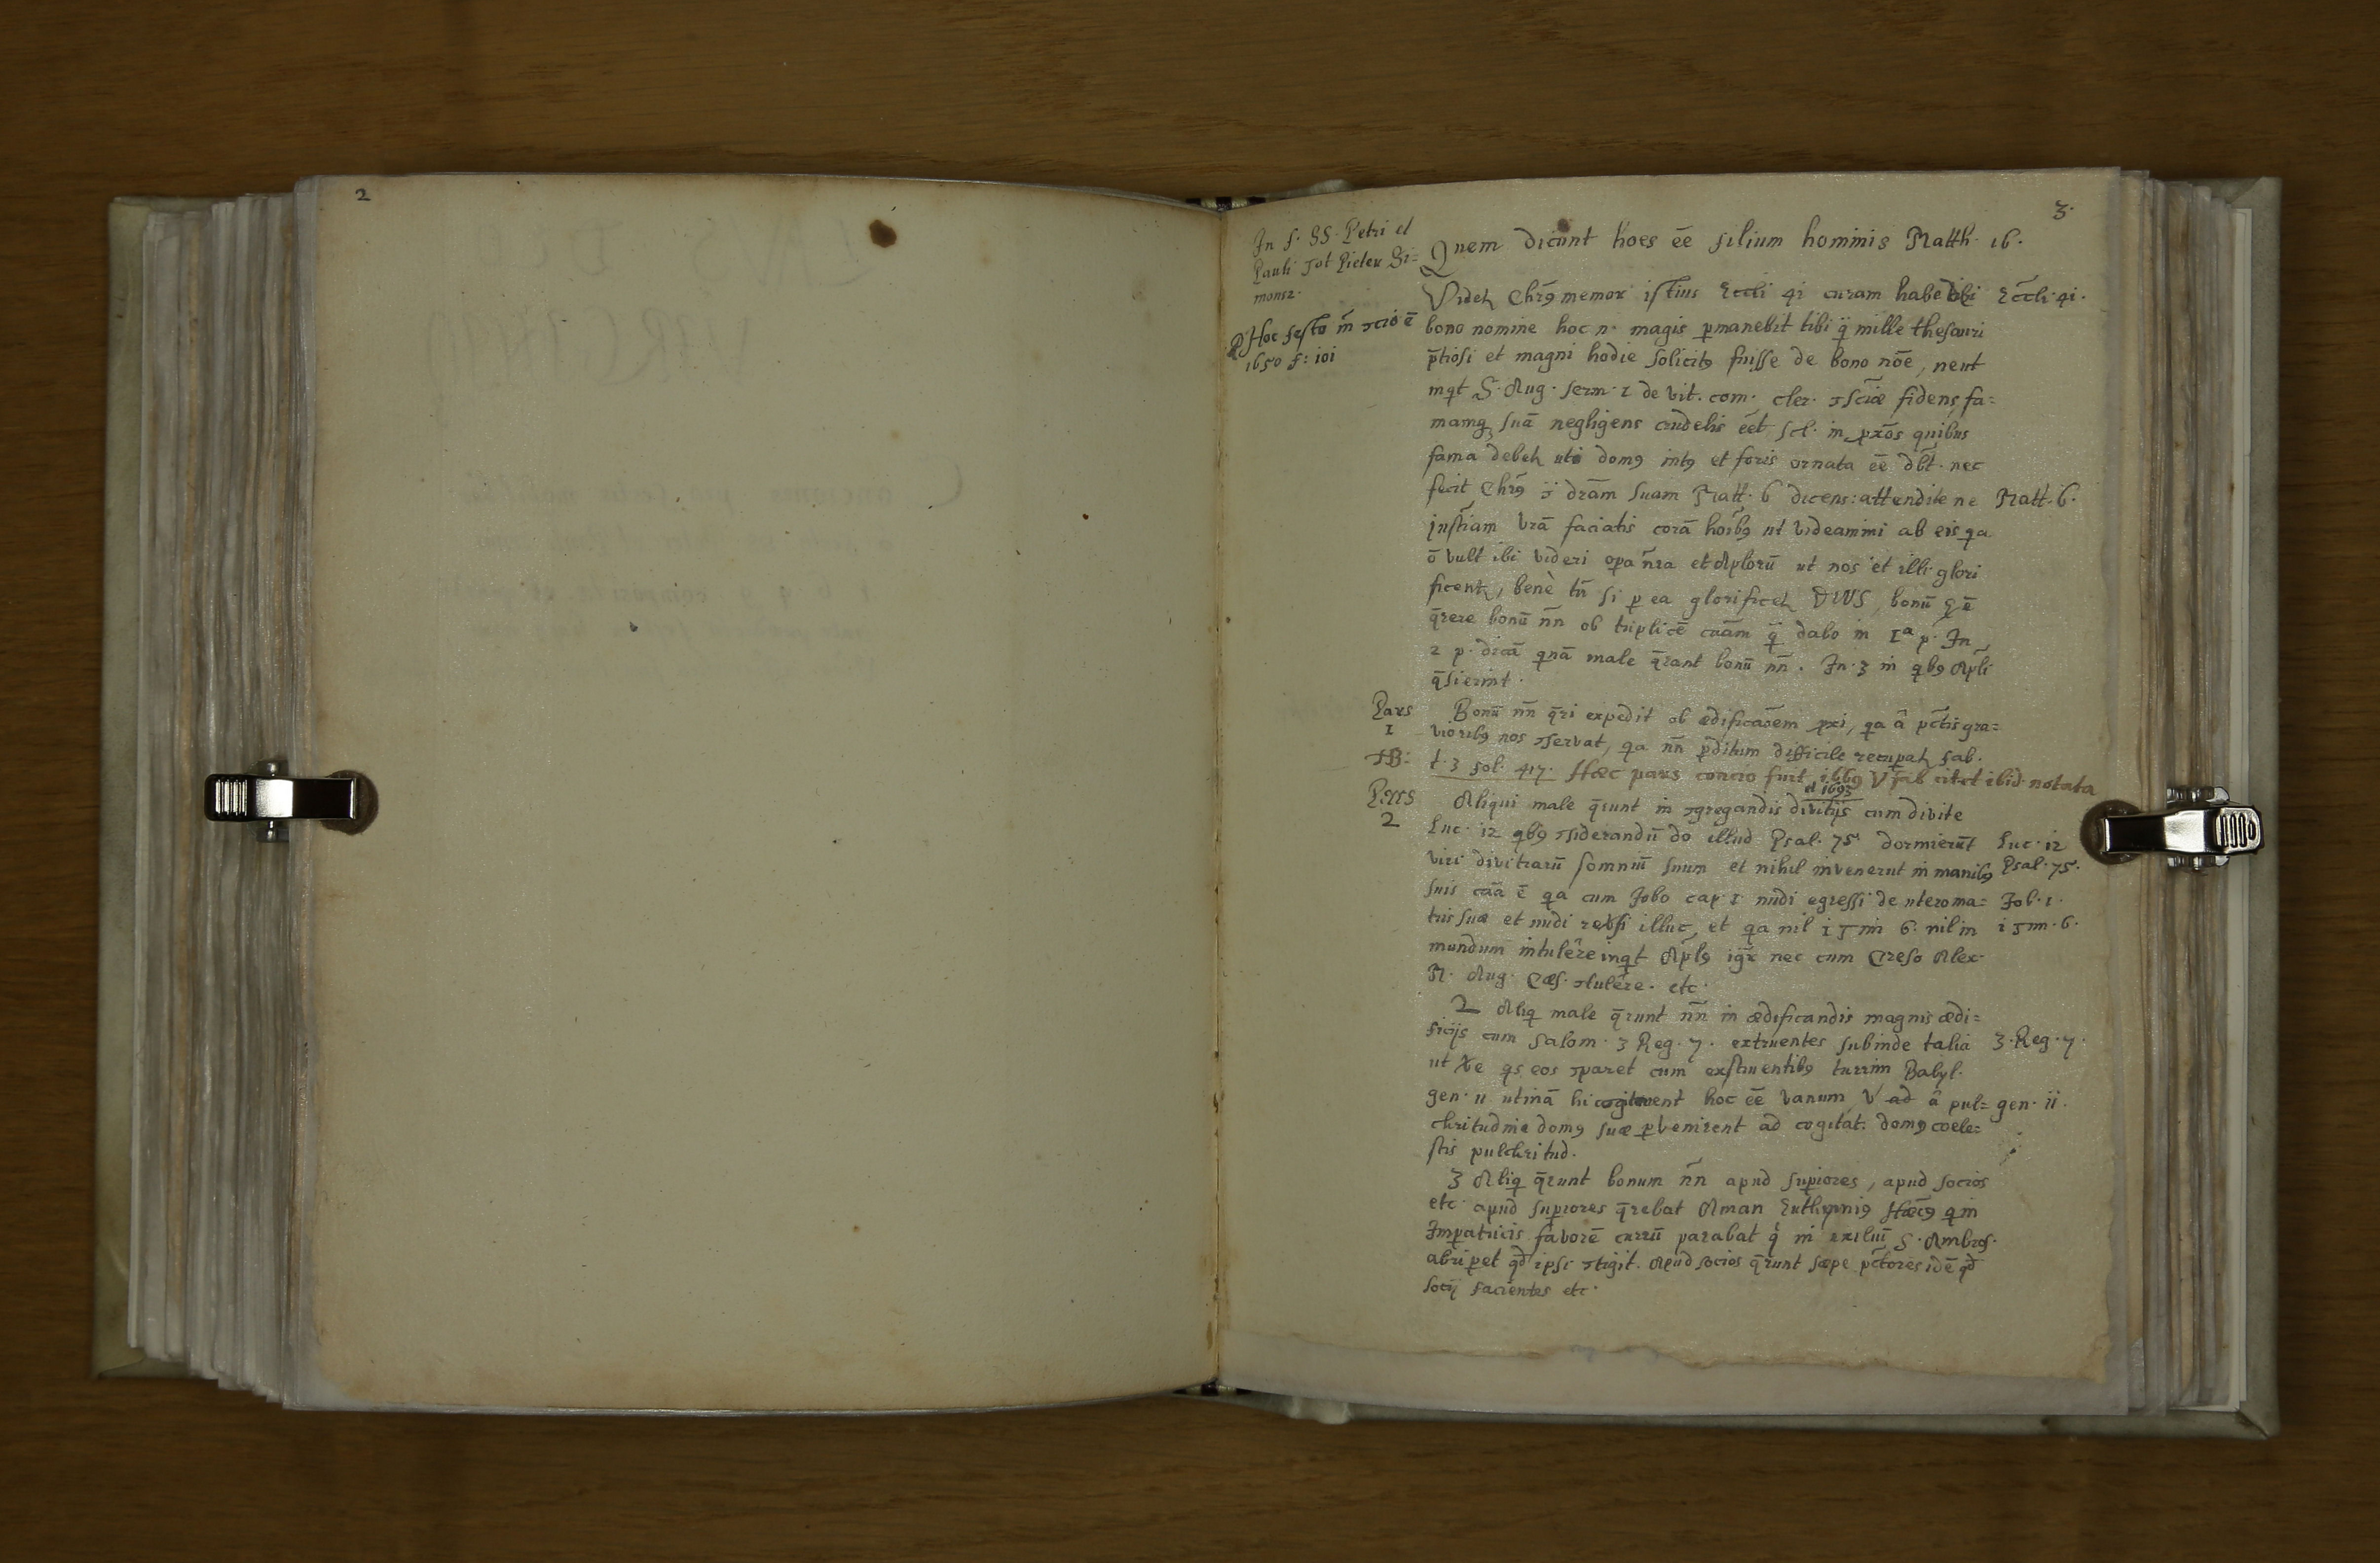 2
3.
In f. SS. Petri et
Pauli tot Pieter Si=
monsz.
Hoc festo m̃ ↄcio ē
1650 f: 101
Quem dicunt hoēs ēe filium hominis Matth. 16.
Videt Chr̃9 memor istius Eccli 41 curam habe tibi Eccli. 41.
bono nomine hoc n. magis permanebit tibi q̄ mille thesauri
p̄tiosi et magni hodie solicit9 fuisse de bono nōe, neut
inqt S. Aug. serm. 1 de vit. com. cler. ↄsciæ fidens, fa=
mamq suā negligens crudelis ēet scl. in pxōs quibus
fama debet uti dom9 int9 et foris ornata ēe dbt. nec
fecit Chr̃9 ↄ drām suam Matt. 6 dicens: attendite ne Matt. 6.
justiam vrā faciatis corā hoib9 ut videamini ab eis qa
ō vult ibi videri opa nra et Aplorū ut nos et illi glori
ficent, benè tn̄ si p ea glorificet DEUS, bonū ē
q̄rere bonū nn̄ ob triplicē cāam q̄ dabo in 1ª p. In
2 p. dicā quā male q̄rant bonū nn̄. In 3 in qb9 Apli
q̄sierint.
Pars 1
Bonū nn̄ q̄ri expedit ob ædificaōem pxi, qa â pctis gra=
viorib9 nos ↄservat, qa nn̄ pditum difficile recupat fab.
t. 3 fol. 417. Hæc pars concio fuit 1669 V fab citet ibid. notata
et 1693
Pars 2
Aliqui male q̄runt in ↄgregandis divitijs cum divite
Luc. 12 qb9 ↄsiderandū do illud Psal. 75 dormierūt Luc. 12
viri divitiarū somniū suum et nihil invenerūt in manib9 Psal. 75.
suis cāa ē qa cum Jobo cap. 1 nudi egressi de utero ma= Job. 1.
tris suæ et nudi rever̃si illuc, et qa nil 1 Tim 6. nil in 1 Tim. 6.
mundum intulêre inqt Apl9 igr̄ nec cum Creso Alex.
M. Aug. Cæs. ↄtulêre. etc.
2 Aliq male q̄runt nn̄ in ædificandis magnis ædi=
ficijs cum Salom. 3 Reg. 7. extruentes subinde talia 3. Reg. 7.
ut qs eos ↄparet cum exstruentib9 turrim Babyl.
gen. 11 utinā hi cogitarent hoc ēe vanum V ad â pul= gen. 11.
chritudine dom9 suæ pvenirent ad cogitat. dom9 coele=
stis pulchritud.
3 Aliq q̄runt bonum nn̄ apud supiores, apud socios
etc. apud supiores q̄rebat Aman Euthymi9 Hæc9 q in
Impatricis favorē currū parabat q in exiliū S. Ambros.
abripet qd ipsi ↄtigit. Apud socios q̄runt sæpe pctores idē qd
socij facientes etc.